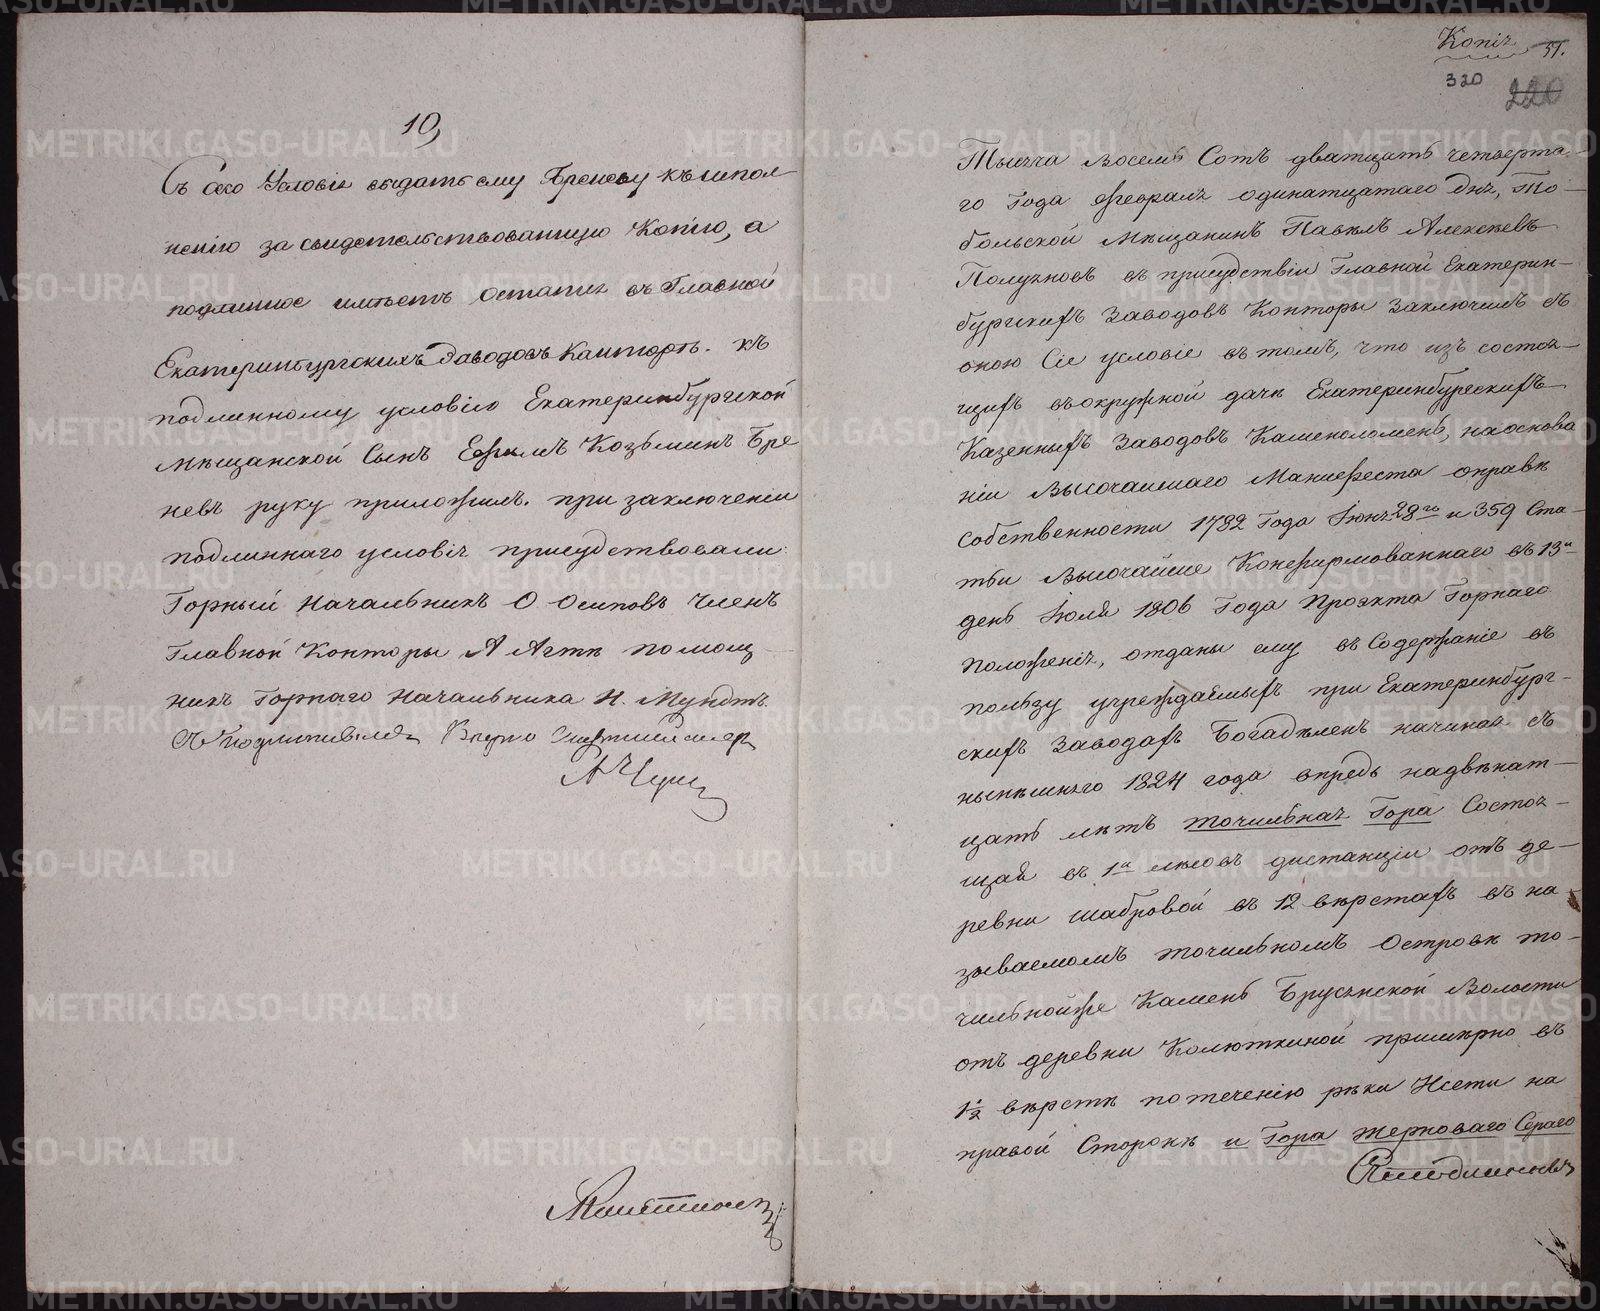 10,
Съ сего Условія выдать ему Бреневу къ испол-
ненію за свидетельствованную Копію, а
подлинное имѣетъ остатца въ Главной
Екатеринбургскихъ Заводовъ Канторѣ. Къ
подлинному условію Екатеринбургской
мѣщанской Сынъ Ефимъ Козьминъ Бре
невъ руку приложилъ. при заключеніи
подлиннаго условія присудствовали:
Горный Начальникъ О Осиповъ Членъ
Главной Конторы А Агте помощ-
никъ Горнаго Начальника Н. Мундтъ.
Съ подлиннымъ Верно
Копія 51.
320
220
Тысяча восемь Сотъ дватцать четверта-
го Года февраля одинатцатаго дня, То-
больской Мѣщанинъ Павелъ Алексѣевъ
Полузновъ въ присудствіи Главной Екатерин-
бургскихъ Заводовъ Конторы Заключилъ съ
оною Сіе условіе въ томъ, что изъ состоя-
щихъ въ окружной дачѣ Екатеринбургскихъ
Казенныхъ Заводовъ Каменоломенъ, на основа
ніи Высочайшаго Манифеста о правѣ
Собственности 1782 Года Іюня 28го и 359 Ста-
тьи Высочайше Конфирмованнаго въ 13й
день Іюля 1806 Года Проэкта Горнаго
положенія, отданы ему въ Содержаніе въ
пользу учреждаемыхъ при Екатеринбург-
скихъ Заводахъ Богадѣленъ начиная съ
нынѣшняго 1824 года впредь на двѣнат-
цать лѣтъ точильная Гора Состоя-
щая въ 1й лѣсовъ дистанціи отъ де-
ревни Шабровой въ 12 верстахъ въ на-
зываемомъ точильномъ Островѣ то-
чильной же Камень Брусянской Волости
отъ деревни Колюткиной примѣрно въ
1½ верстѣ по теченію рѣки Исети на
правой Сторонѣ и Гора жерноваго Сераго